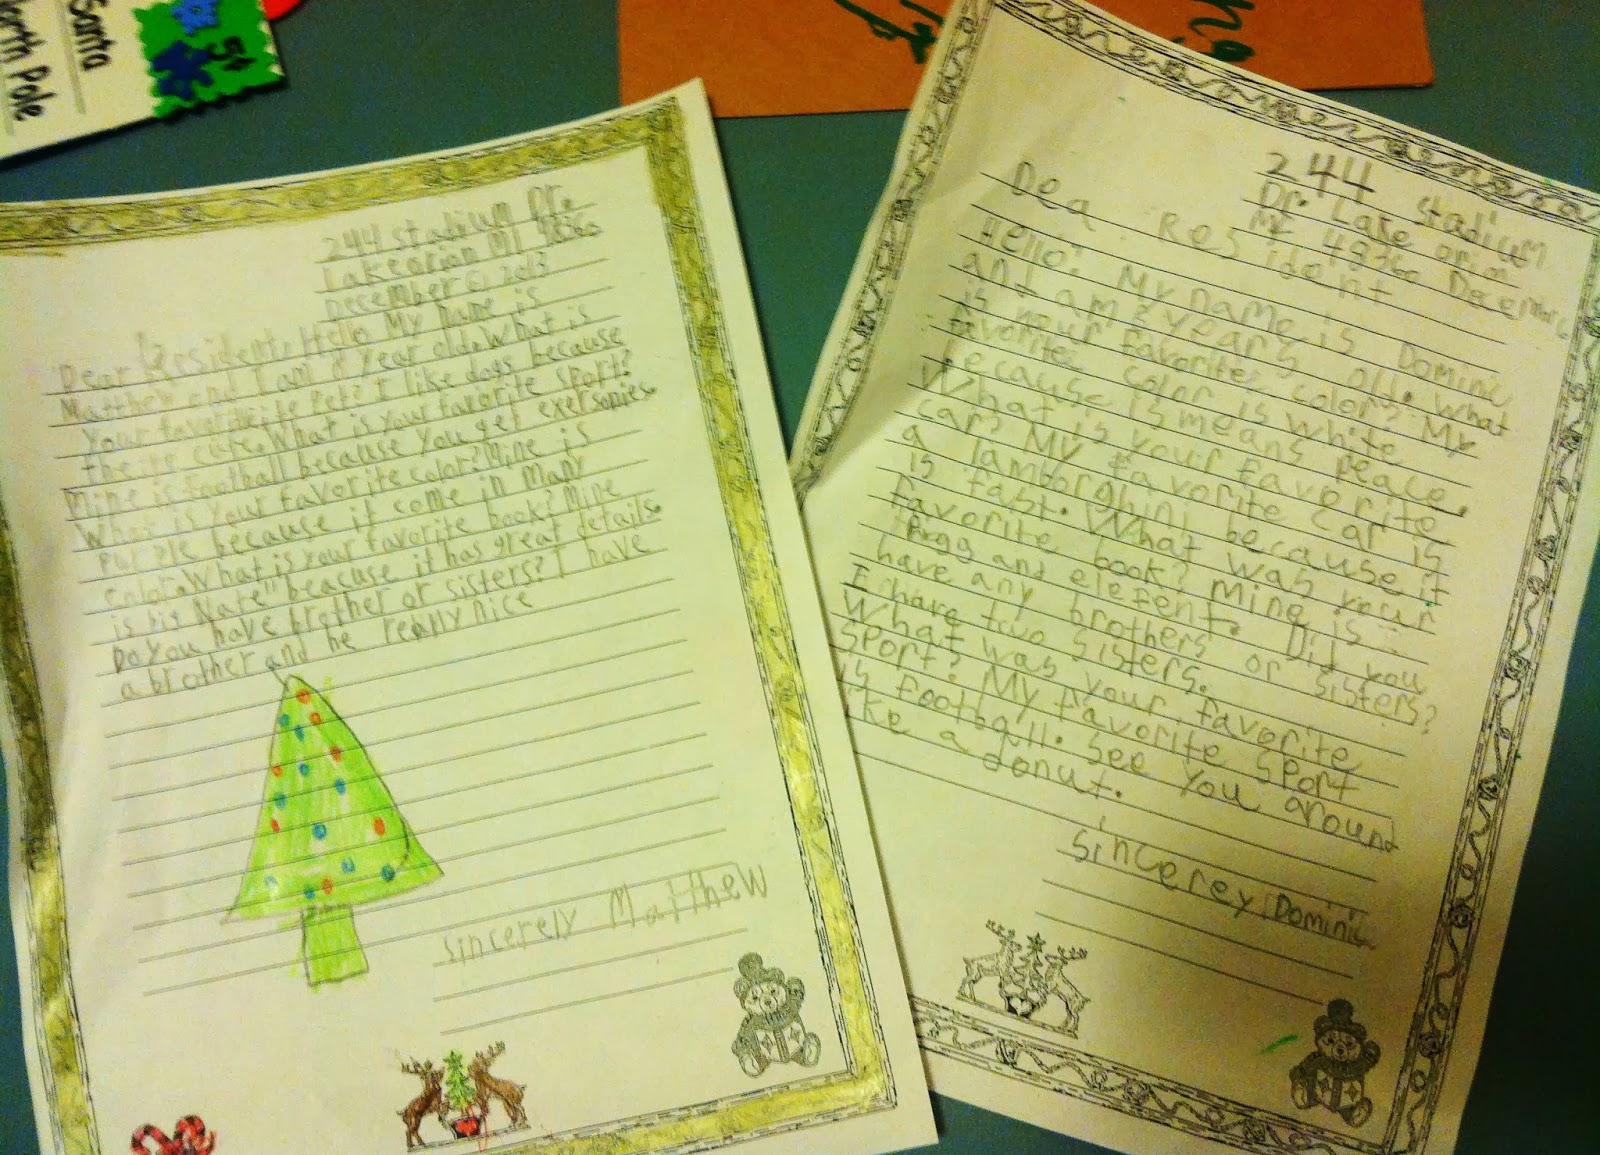 Santa
North Pole
5¢
244 Stadium Dr.
Lake orion MI 48360
December 6 2013
Dear Resident, Hello My name is
Matthew and I am 8 year old. What is
your favorite Pet? I like dogs because
cute. What is your favorite sport?
Mine is Football because you get
What is your favorite color? Mine is
purple because it come in many
color. What is your favorite book? Mine
is big Nate" beacuse it has great details.
Do you have brother or sisters? I have
a brother and he really nice
sincerely Matthew
244 Stadium
Dr. Lake orion
MI 48360 December
Dea Resident
Hello! My name is Dominic
and I am 7 years old. What
is your favorite color? My
favorite color is white
because is means peace.
What is your favorite
car? My favorite car is
a lamborghini because it
is fast. What was your
favorite book? Mine is
Pigg and elefent. Did you
have any brothers or sisters?
I have two sisters.
What was your favorite
sport? My favorite sport
is football. see you around
like a donut.
sincerey Dominic